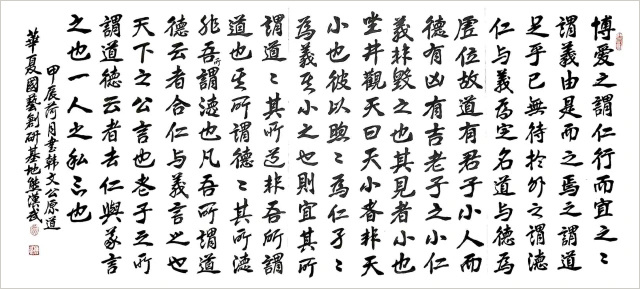 博愛之謂仁行而宜之〻
謂義由是而之焉之謂道
足乎己無待於外之謂德
仁与義為定名道与德為
虛位故道有君子小人而
德有凶有吉老子之小仁
義非毀之也其見者小也
坐井觀天曰天小者非天
小也彼以煦〻為仁孑〻
為義其小之也則宜其所
謂道〻其所道非吾所謂
道也其所謂德〻其所德
非吾所謂德也凡吾所謂道
德云者合仁与義言之也
天下之公言也老子之所
謂道德云者去仁與義言
之也一人之私言也
甲辰荷月書韓文公原道
華夏國藝創研基地熊漢武